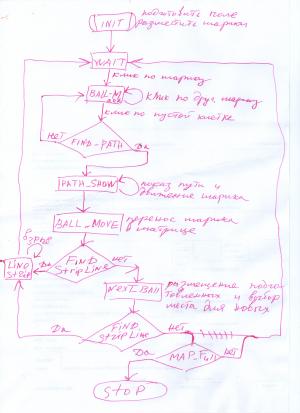 INIT
подготовить поле
разместить шарики
WAIT
клик по шарику
BALL-M
клик по друг. шарику
клик по пустой клетке
FIND-PATH
нет
Да
PATH_SHOW
показ пути и
движение шарика
BALL_MOVE
перенос шарика
в матрице
взрыв
FIND
StripLine
Да
нет
NEXT_Ball
размещение подго-
товленных и выбор
места для новых
FIND
StripLine
Да
нет
MAP_Full
Да
нет
STOP